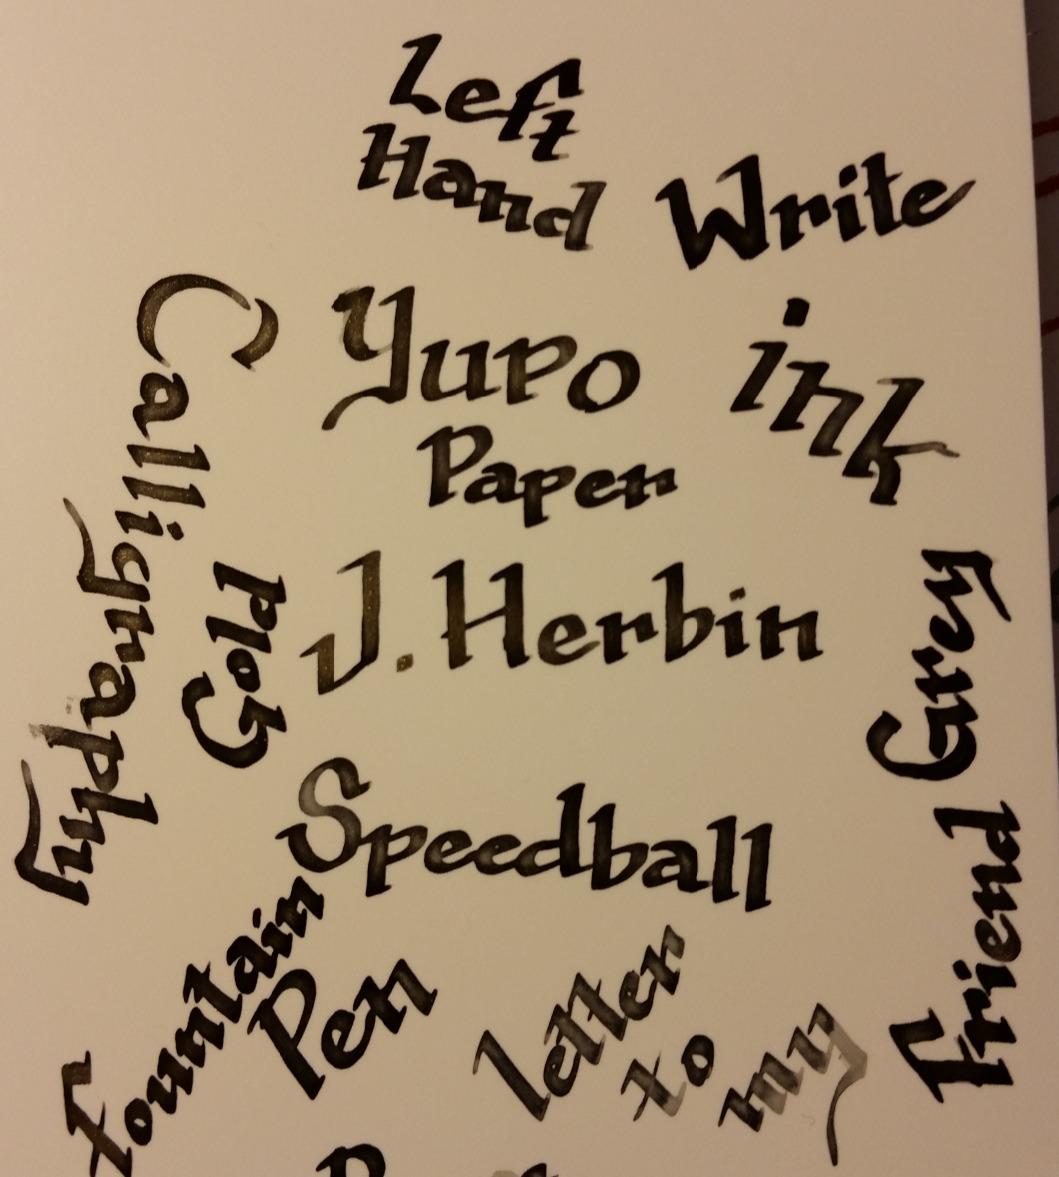 Left
Hand
Write
Yupo
Paper
ink
Calligraphy
Gold
J. Herbin
Grey
Speedball
Friend
fountain
Pen
letter
to
my